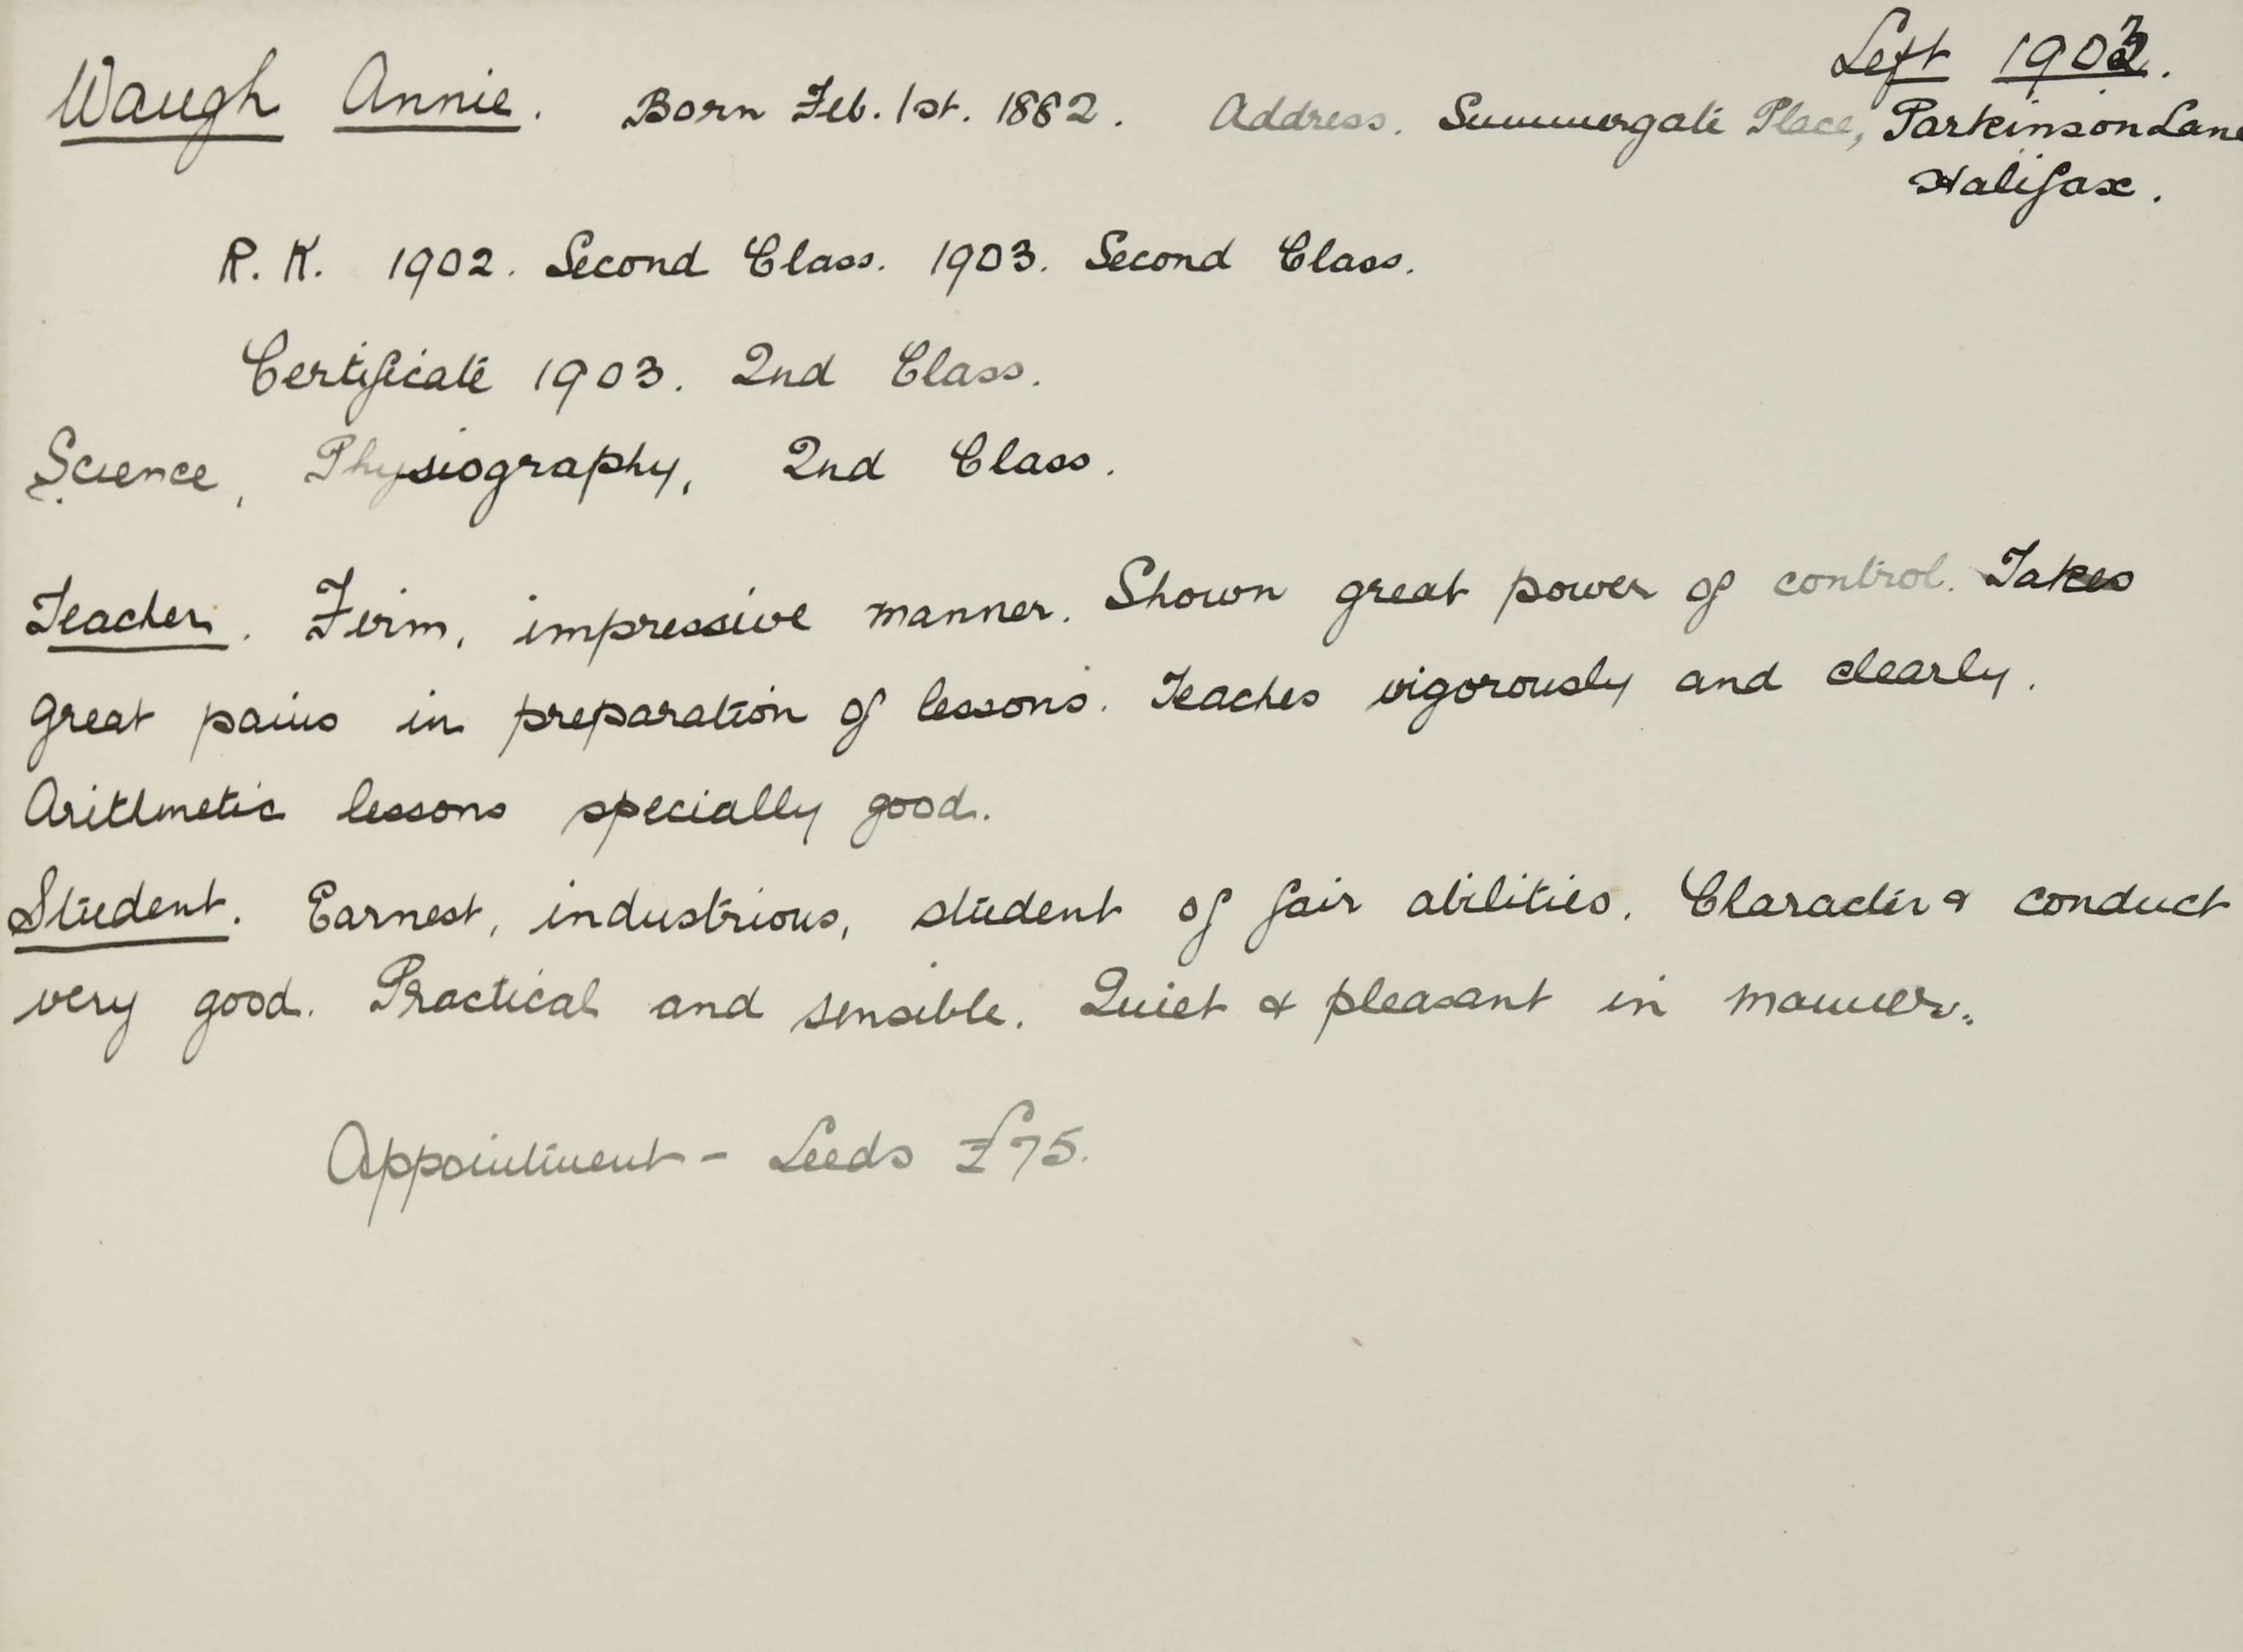 Left 1903.
Waugh Annie. Born Feb. 1st. 1882. Address. Summergate Place, Parkinson Lane
Halifax.
R. K. 1902. Second Class. 1903. Second Class.
Certificate 1903. 2nd Class.
Science, Physiography, 2nd Class.
Teacher. Firm, impressive manner. Shown great power of control. Takes
great pains in preparation of lessons. Teaches vigorously and clearly.
Arithmetic lessons specially good.
Student. Earnest, industrious, student of fair abilities. Character & conduct
very good. Practical and sensible. Quiet & pleasant in manner.
Appointment - Leeds £75.